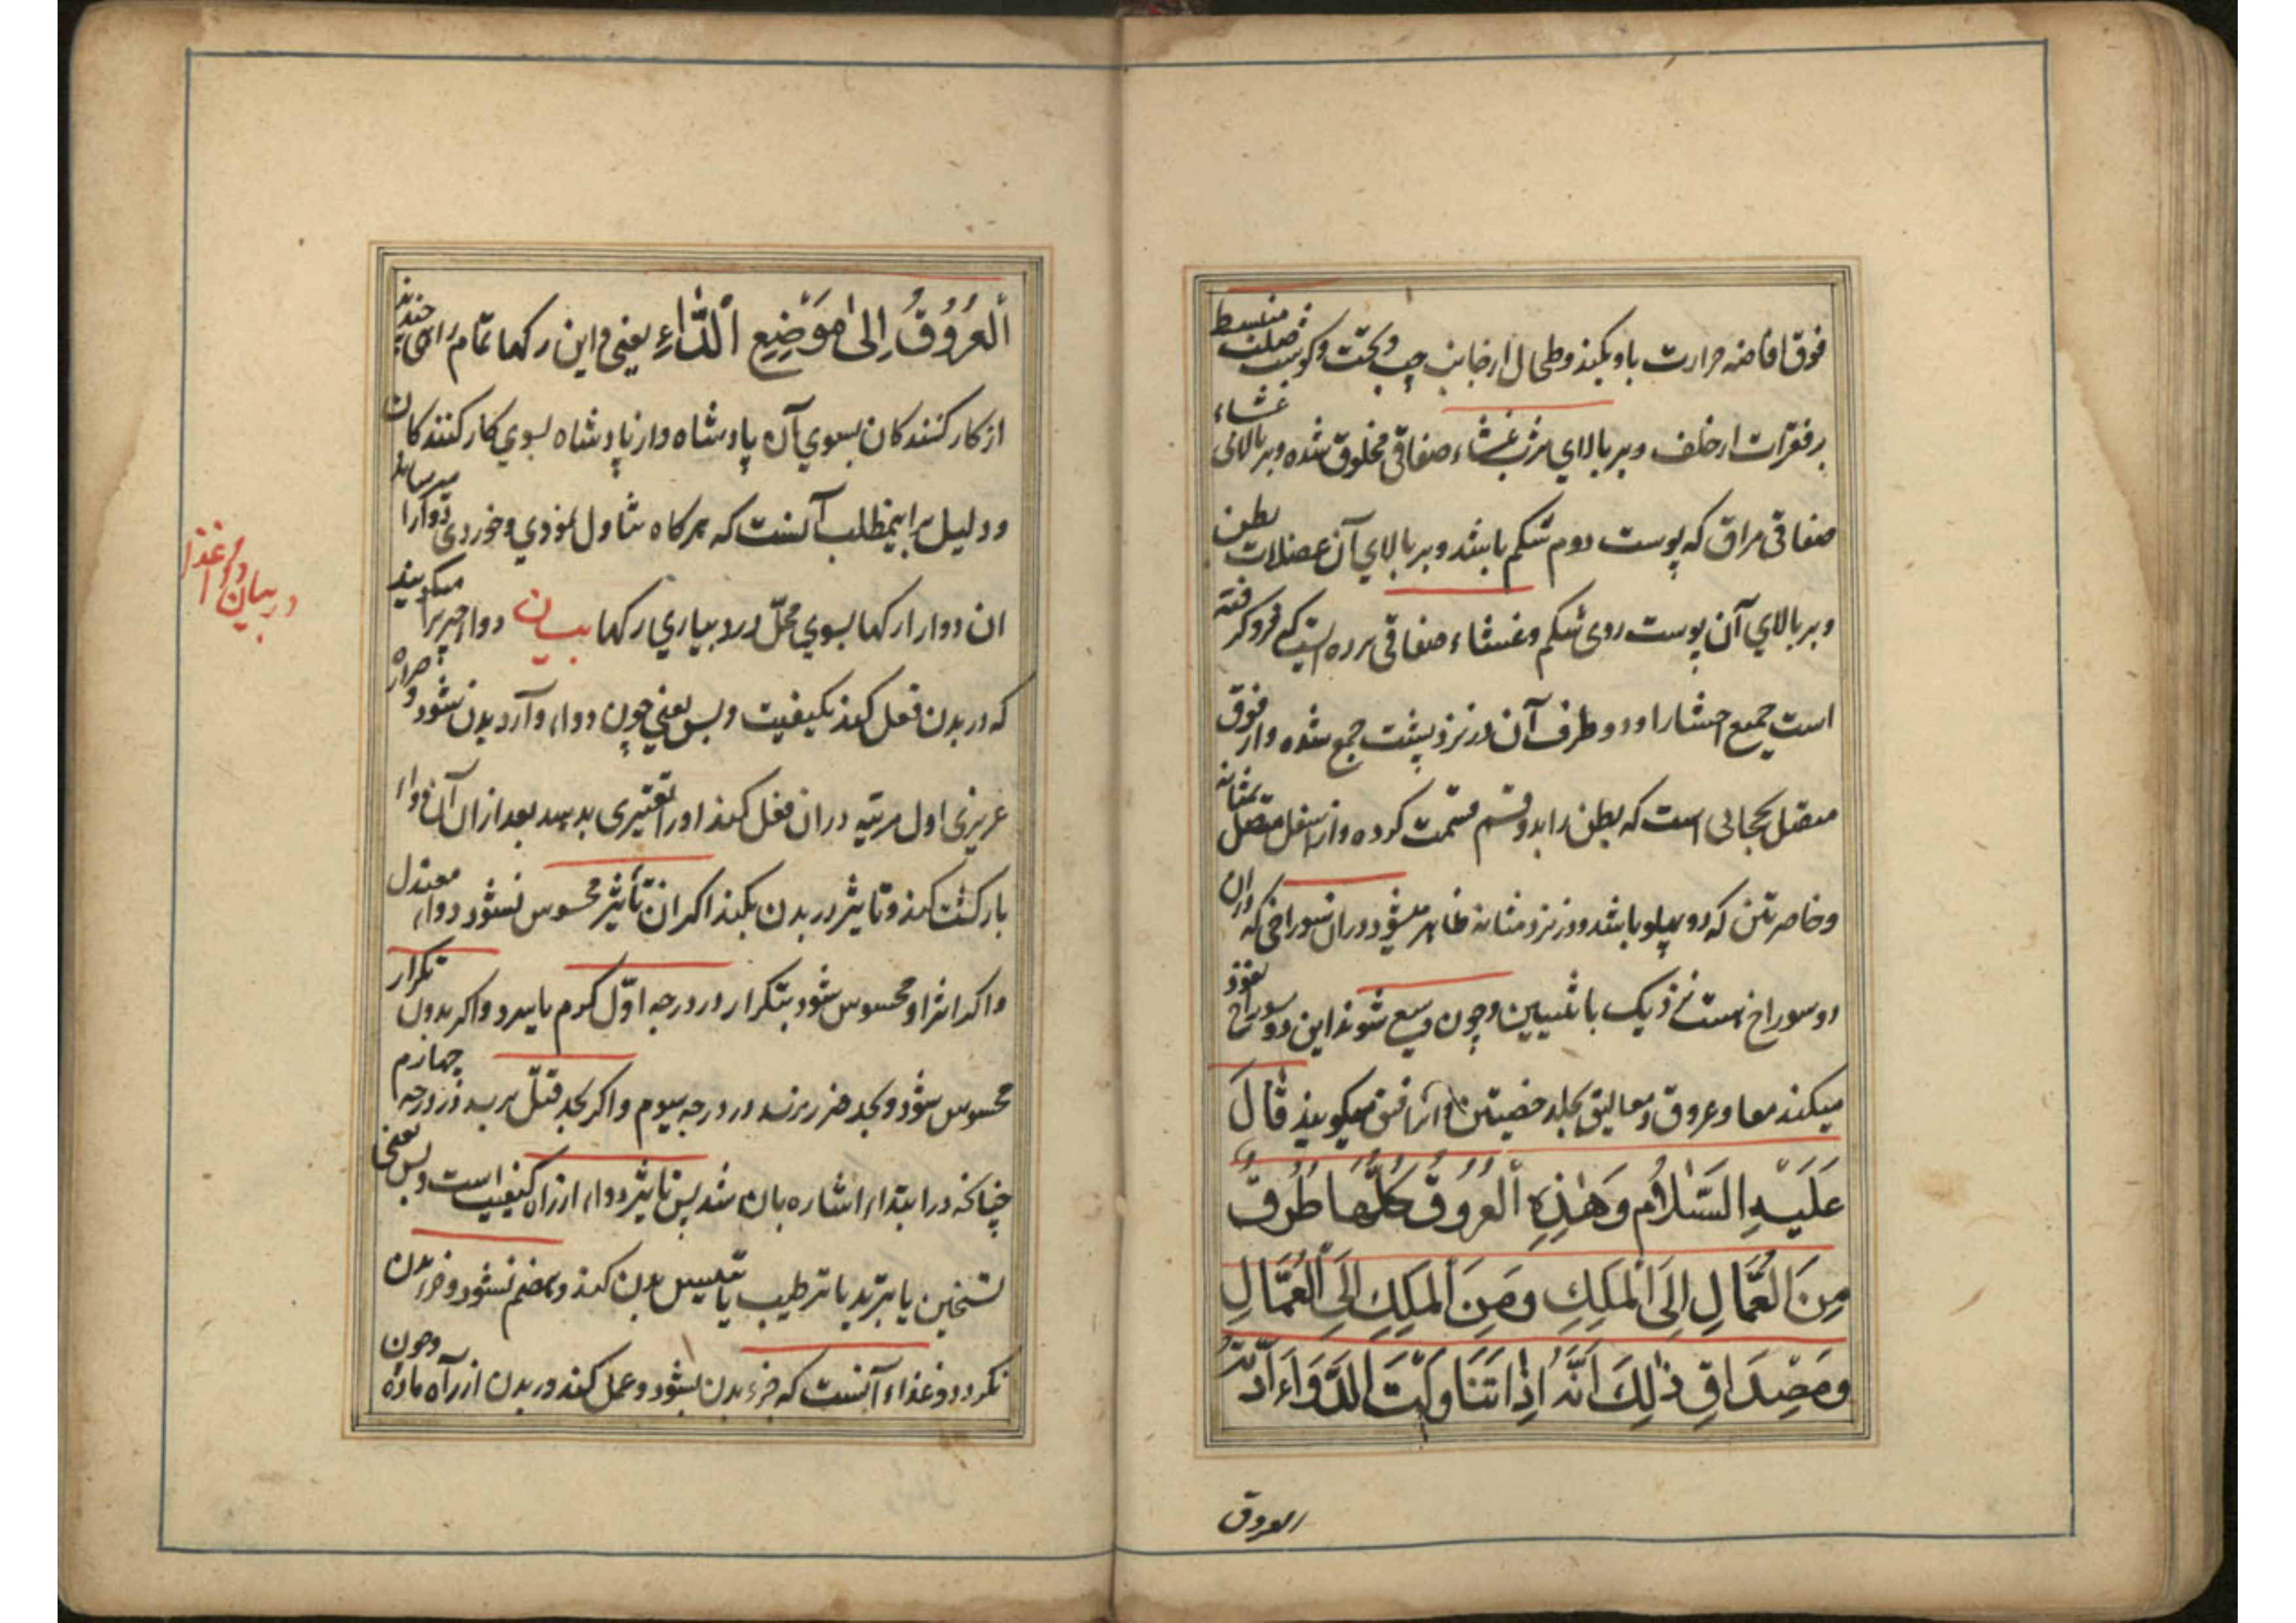 فوق افاضه حرارت باو بکند و طحال از جانب چپ و تحت و کوست ضلعت منبسط
بر فقرات از خلف و بر بالای ثرب غشاء صفاقی مخلوق شده و بر بالائی غشاء
صفاقی مراق که پوست دوم شکم باشد و بر بالای آن عضلات بطن
و بر بالای آن پوست روی شکم و غشاء صفاقی پرده ایست که فرو گرفته
است جمیع احشا را و دو طرف آن در نزد پشت جمع شده و از فوق
متصل بحجابی است که بطن را بدو قسم قسمت کرده و از اسفل متصل بمثانه
و خاصرتین که دو پهلو باشد و در نزد مثانه ظاهر میشود دوران سوراخی که دران
دو سوراخ است نزدیک بانثیین و چون وسیع شوند این دو سوراخ نفوذ
میکند معا و عروق و معالیق بجلد خصیتین و انرا فتق میگویند قال
عَلَيْهِ السَّلَامُ وَهٰذِهِ الْعُرُوقُ كُلُّهَا طُرُقٌ
مِنَ الْعُمَّالِ اِلَى الْمَلِكِ وَمِنَ الْمَلِكِ اِلَى الْعُمَّالِ
وَمِصْدَاقُ ذٰلِكَ اَنَّهُ اِذَا تَنَاوَلْتَ الدَّوَاءَ اَدَّتْهُ
العروق
اَلْعُرُوقُ اِلٰى مَوْضِعِ الْدَّاءِ یعنی و این رکها تمام راهی چندند
از کارکنندکان بسوی آن پادشاه و از پادشاه بسوی کارکنندکان
و دلیل براینمطلب آنست که هرکاه تناول نمودی و خوردی دوا را میرساند
ان دوا را رکها بسوی محلّ درد و بیاری رکها بیان دوا، چیزیرا میکویند
که در بدن فعل کند بکیفیت و بس یعنی چون دوا، وارد بدن شود و حرارة
غریزی اول مرتبه دران فعل کند و اورا تغییری بدهد بعد از ان آن دواء
بازکشت کند و تاثیر در بدن بکند اکر ان تأثیر محسوس نشود دواء معتدل
و اکر اثر او محسوس شود بتکرار در درجه اوّل کرم یا سرد و اکر بدون تکرار
محسوس شود و بحد ضرر نرسد در درجه سیوم و اکر بحد قتل برسد در درجه چهارم
چنانکه در ابتداء اشاره بان شد پس تاثیر دواء از راه کیفیت است و بس یعنی
تسخین یا تبرید یا ترطیب یا تیبیس بدن کند و هضم نشود و جزء بدن
نکردد و غذاء آنست که جزء بدن بشود و عمل کند در بدن از راه ماده و چون
در بیان دوا و غذا